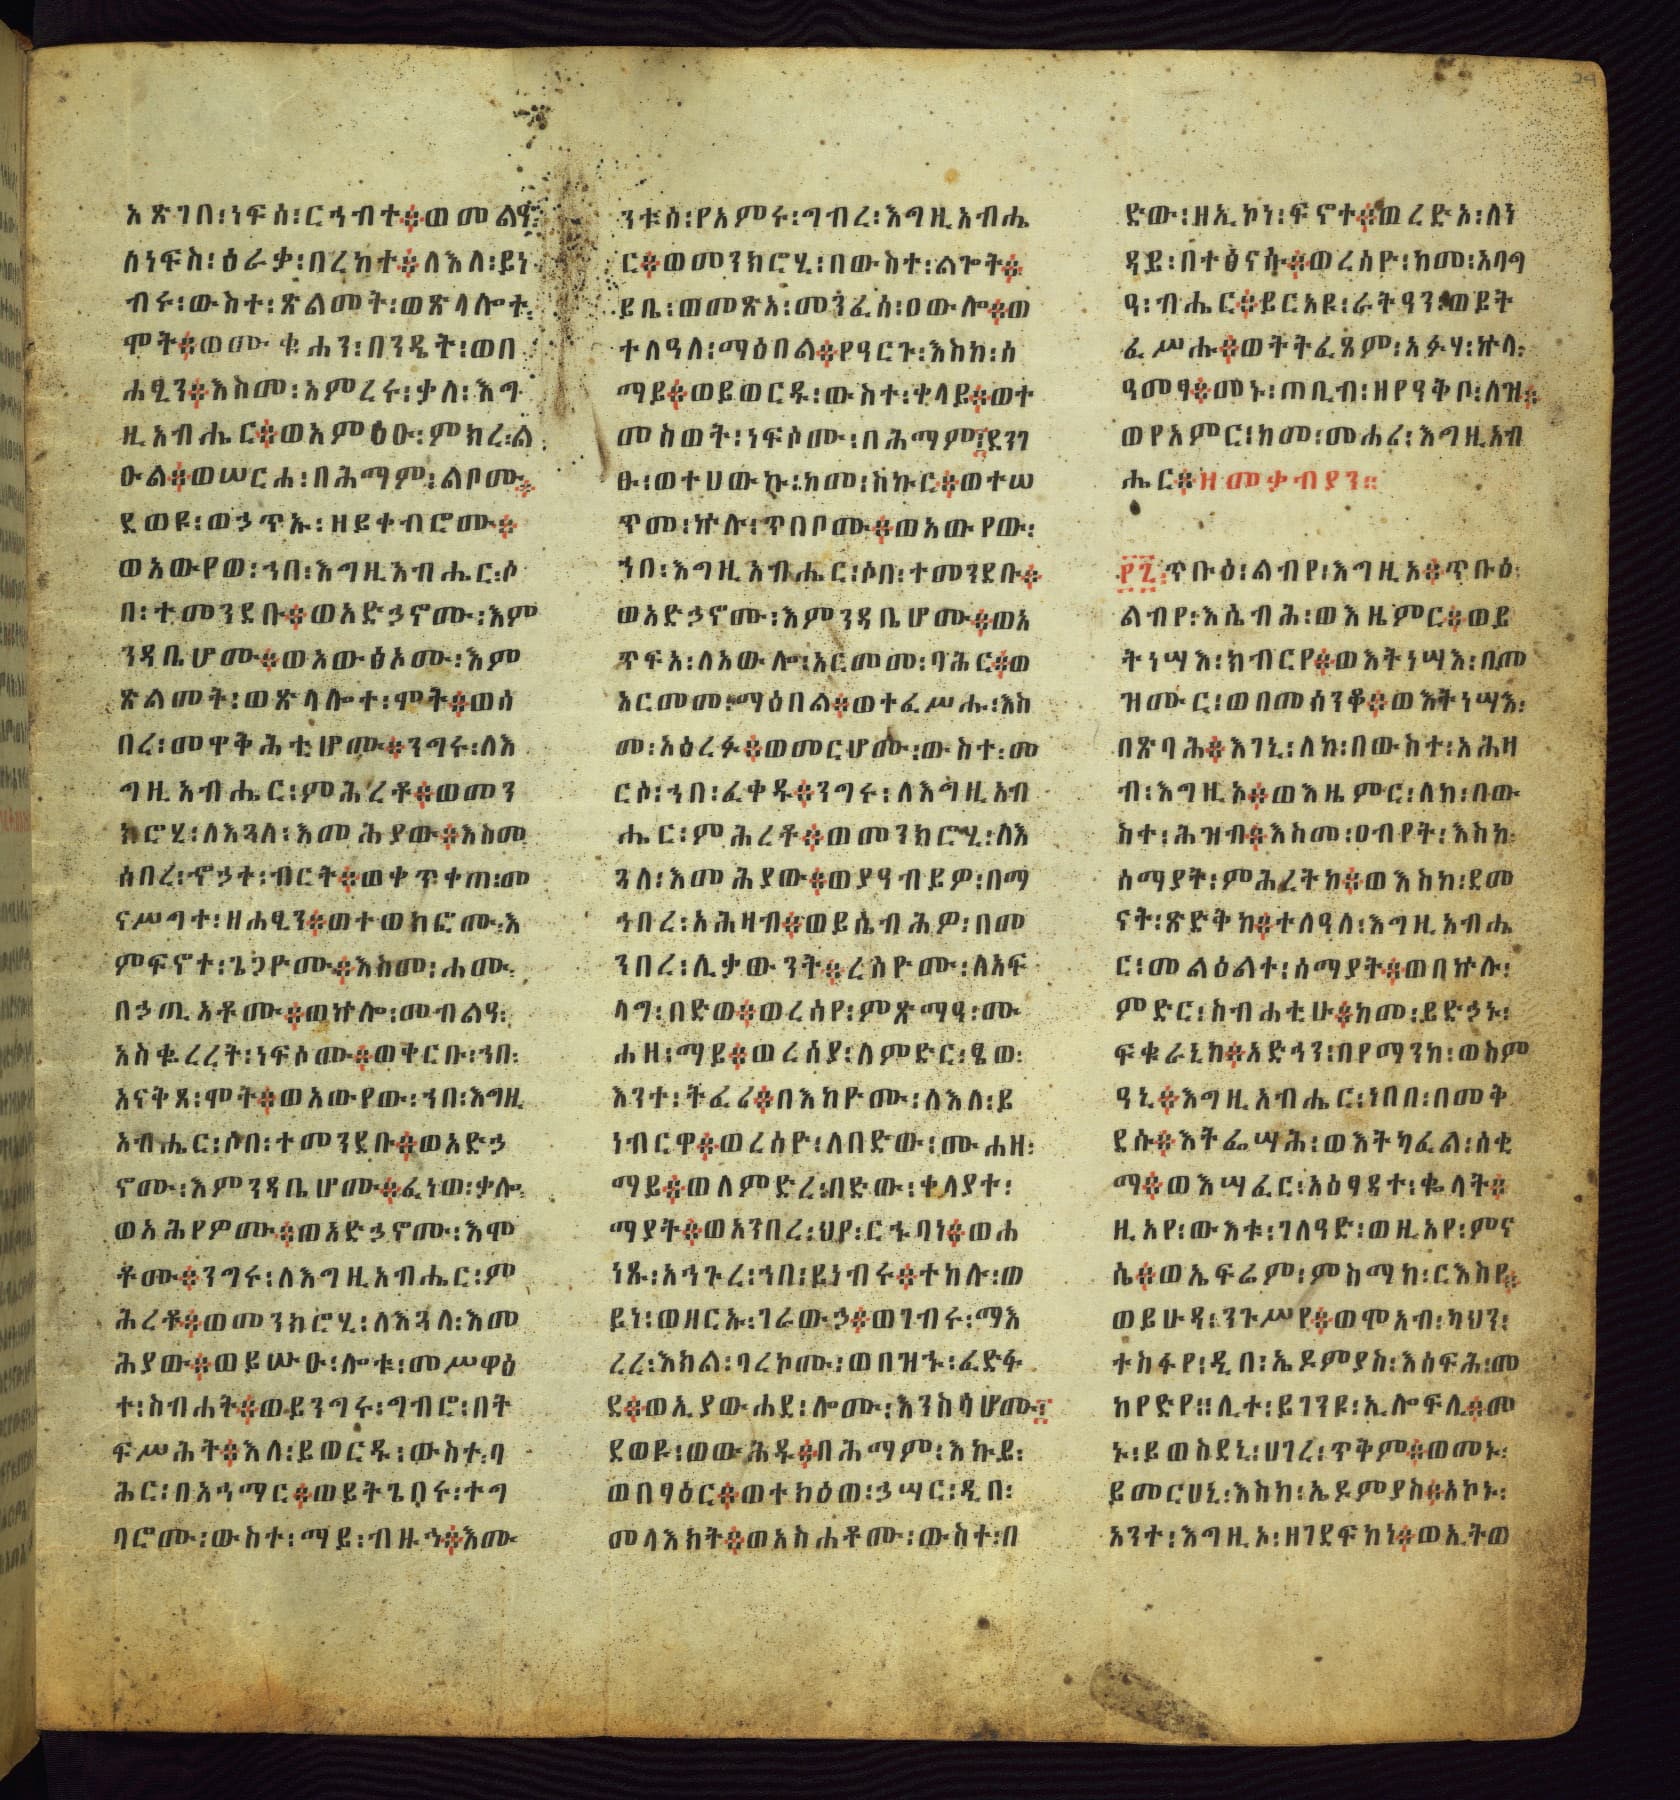 አጽገበ፡ነፍሰ፡ርኅብተ።ወመልዓ፡
ለነፍስ፡ዕራቃ፡በረከተ።ለእለ፡ይነ
ብሩ፡ውስተ፡ጽልመት፡ወጽላሎተ፡
ሞት።ወሙቁሐን፡በንዴት፡ወበ
ሐፂን።እስመ፡አምረሩ፡ቃለ፡እግ
ዚአብሔር።ወአምዕዑ፡ምክረ፡ል
ዑል።ወሠርሐ፡በሕማም፡ልቦሙ።
ደወዩ፡ወኃጥኡ፡ዘይቀብሮሙ።
ወአውየዉ፡ኀበ፡እግዚአብሔር፡ሶ
በ፡ተመንደቡ።ወአድኃኖሙ፡እም
ንዳቤሆሙ።ወአውፅኦሙ፡እም
ጽልመት፡ወጽላሎተ፡ሞት።ወሰ
በረ፡መዋቅሕቲሆሙ።ንግሩ፡ለእ
ግዚአብሔር፡ምሕረቶ።ወመን
ክሮሂ፡ለእጓለ፡እመሕያው።እስመ
ሰበረ፡ኆኃተ፡ብርት።ወቀጥቀጠ፡መ
ናሥግተ፡ዘሐፂን።ወተወክፎሙ፡እ
ምፍኖተ፡ጌጋዮሙ።እስመ፡ሐሙ፡
በኃጢአቶሙ።ወኵሎ፡መብልዓ፡
አስቈረረት፡ነፍሶሙ።ወቀርቡ፡ኀበ፡
አናቅጸ፡ሞት።ወአውየው፡ኀበ፡እግዚ
አብሔር፡ሶበ፡ተመንደቡ።ወአድኃ
ኖሙ፡እምንዳቤሆሙ።ፈነወ፡ቃሎ፡
ወአሕየዎሙ።ወአድኃኖሙ፡እሞ
ቶሙ።ንግሩ፡ለእግዚአብሔር፡ም
ሕረቶ።ወመንክሮሂ፡ለእጓለ፡እመ
ሕያው።ወይሡዑ፡ሎቱ፡መሥዋዕ
ተ፡ስብሐት።ወይንግሩ፡ግብሮ፡በት
ፍሥሕት።እለ፡ይወርዱ፡ውስተ፡ባ
ሕር፡በአኅማር።ወይትጌበሩ፡ተግ
ባሮሙ፡ውስተ፡ማይ፡ብዙኅ።እሙ
ንቱሰ፡የአምሩ፡ግብረ፡እግዚአብሔ
ር።ወመንክሮሂ፡በውስተ፡ልጐት።
ይቤ፡ወመጽአ፡መንፈሰ፡ዐውሎ።ወ
ተለዓለ፡ማዕበል።የዓርጉ፡እስከ፡ሰ
ማይ።ወይወርዱ፡ውስተ፡ቀላይ።ወተ
መስወት፡ነፍሶሙ፡በሕማም፡ደንገ
ፁ፡ወተሀውኩ፡ከመ፡ስኩር።ወተሠ
ጥመ፡ኵሉ፡ጥበቦሙ።ወአውየው፡
ኀበ፡እግዚአብሔር፡ሶበ፡ተመንደቡ።
ወአድኃኖሙ፡እምንዳቤሆሙ።ወአ
ጥፍአ፡ለአውሎ፡አርመመ፡ባሕር።ወ
አርመመ፡ማዕበል።ወተፈሥሑ፡እስ
መ፡አዕረፉ።ወመርሆሙ፡ውስተ፡መ
ርሶ፡ኀበ፡ፈቀዱ።ንግሩ፡ለእግዚአብ
ሔር፡ምሕረቶ።ወመንክሮሂ፡ለእ
ጓለ፡እመሕያው።ወያዓብይዎ፡በማ
ኅበረ፡አሕዛብ።ወይሴብሕዎ፡በመ
ንበረ፡ሊቃውንት።ረሰዮሙ፡ለአፍ
ላግ፡በድወ።ወረሰየ፡ምጽማዓ፡ሙ
ሐዘ፡ማይ።ወረሰያ፡ለምድር፡ፄወ፡
እንተ፡ትፈሪ።በእከዮሙ፡ለእለ፡ይ
ነብርዋ።ወረሰዮ፡ለበድው፡ሙሐዘ፡
ማይ።ወለምድረ፡በድው፡ቀላያተ፡
ማያት።ወአንበረ፡ህየ፡ርኁባነ።ወሐ
ነጹ፡አኅጉረ፡ኀበ፡ይነብሩ።ተከሉ፡ወ
ይነ፡ወዘርኡ፡ገራውኃ።ወገብሩ፡ማእ
ረረ፡እክል፡ባረኮሙ፡ወበዝኁ፡ፈድፋ
ደ።ወኢያውሐደ፡ሎሙ፡እንስሳሆሙ።
ደወዩ፡ወውሕዱ።በሕማም፡እኩይ፡
ወበፃዕር።ወተክዕወ፡ኃሣር፡ዲበ፡
መላእክት።ወአስሐቶሙ፡ውስተ፡በ
ድው፡ዘኢኮነ፡ፍኖተ።ወረድአ፡ለነ
ዳይ፡በተፅናሱ።ወረሰዮ፡ከመ፡አባግ
ዓ፡ብሔር።ይርአዩ፡ራትዓን፡ወይት
ፈሥሑ።ወትትፈጸም፡አፉሃ፡ኵላ፡
ዓመፃ።መኑ፡ጠቢብ፡ዘየዓቅቦ፡ለዝ።
ወየአምር፡ከመ፡መሐሪ፡እግዚአብ
ሔር።ዘመቃብያን።
፻፯፡ጥቡዕ፡ልብየ፡እግዚኦ።ጥቡዕ፡
ልብየ፡እሴብሕ፡ወእዜምር።ወይ
ትነሣእ፡ክብርየ።ወእትነሣእ፡በመ
ዝሙር፡ወበመሰንቆ።ወእትነሣእ፡
በጽባሕ።እገኒ፡ለከ፡በውስተ፡አሕዛ
ብ፡እግዚኦ።ወእዜምር፡ለከ፡በው
ስተ፡ሕዝብ።እስመ፡ዐብየት፡እስከ፡
ሰማያት፡ምሕረትከ።ወእስከ፡ደመ
ናት፡ጽድቅከ።ተለዓለ፡እግዚአብሔ
ር፡መልዕልተ፡ሰማያት።ወበኵሉ፡
ምድር፡ስብሐቲሁ።ከመ፡ይድኃኑ፡
ፍቁራኒከ።አድኅን፡በየማንከ፡ወስም
ዓኒ።እግዚአብሔር፡ነበበ፡በመቅ
ደሱ።እትፌሣሕ፡ወእትካፈል፡ሰቂ
ማ።ወእሣፈር፡አዕፃዳተ፡ቈላት።
ዚአየ፡ውእቱ፡ገለዓድ፡ወዚአየ፡ምና
ሴ።ወኤፍሬም፡ምስማከ፡ርእስየ።
ወይሁዳ፡ንጉሥየ።ወሞአብ፡ካህን፡
ተስፋየ፡ዲበ፡ኤዶምያስ፡እሰፍሕ፡መ
ከየድየ።ሊተ፡ይገንዩ፡ኢሎፍሊ።መ
ኑ፡ይወስደኒ፡ሀገረ፡ጥቅም።ወመኑ፡
ይመርሀኒ፡እስከ፡ኤዶምያስ።አኮኑ፡
አንተ፡እግዚኦ፡ዘገደፍከነ።ወኢትወ